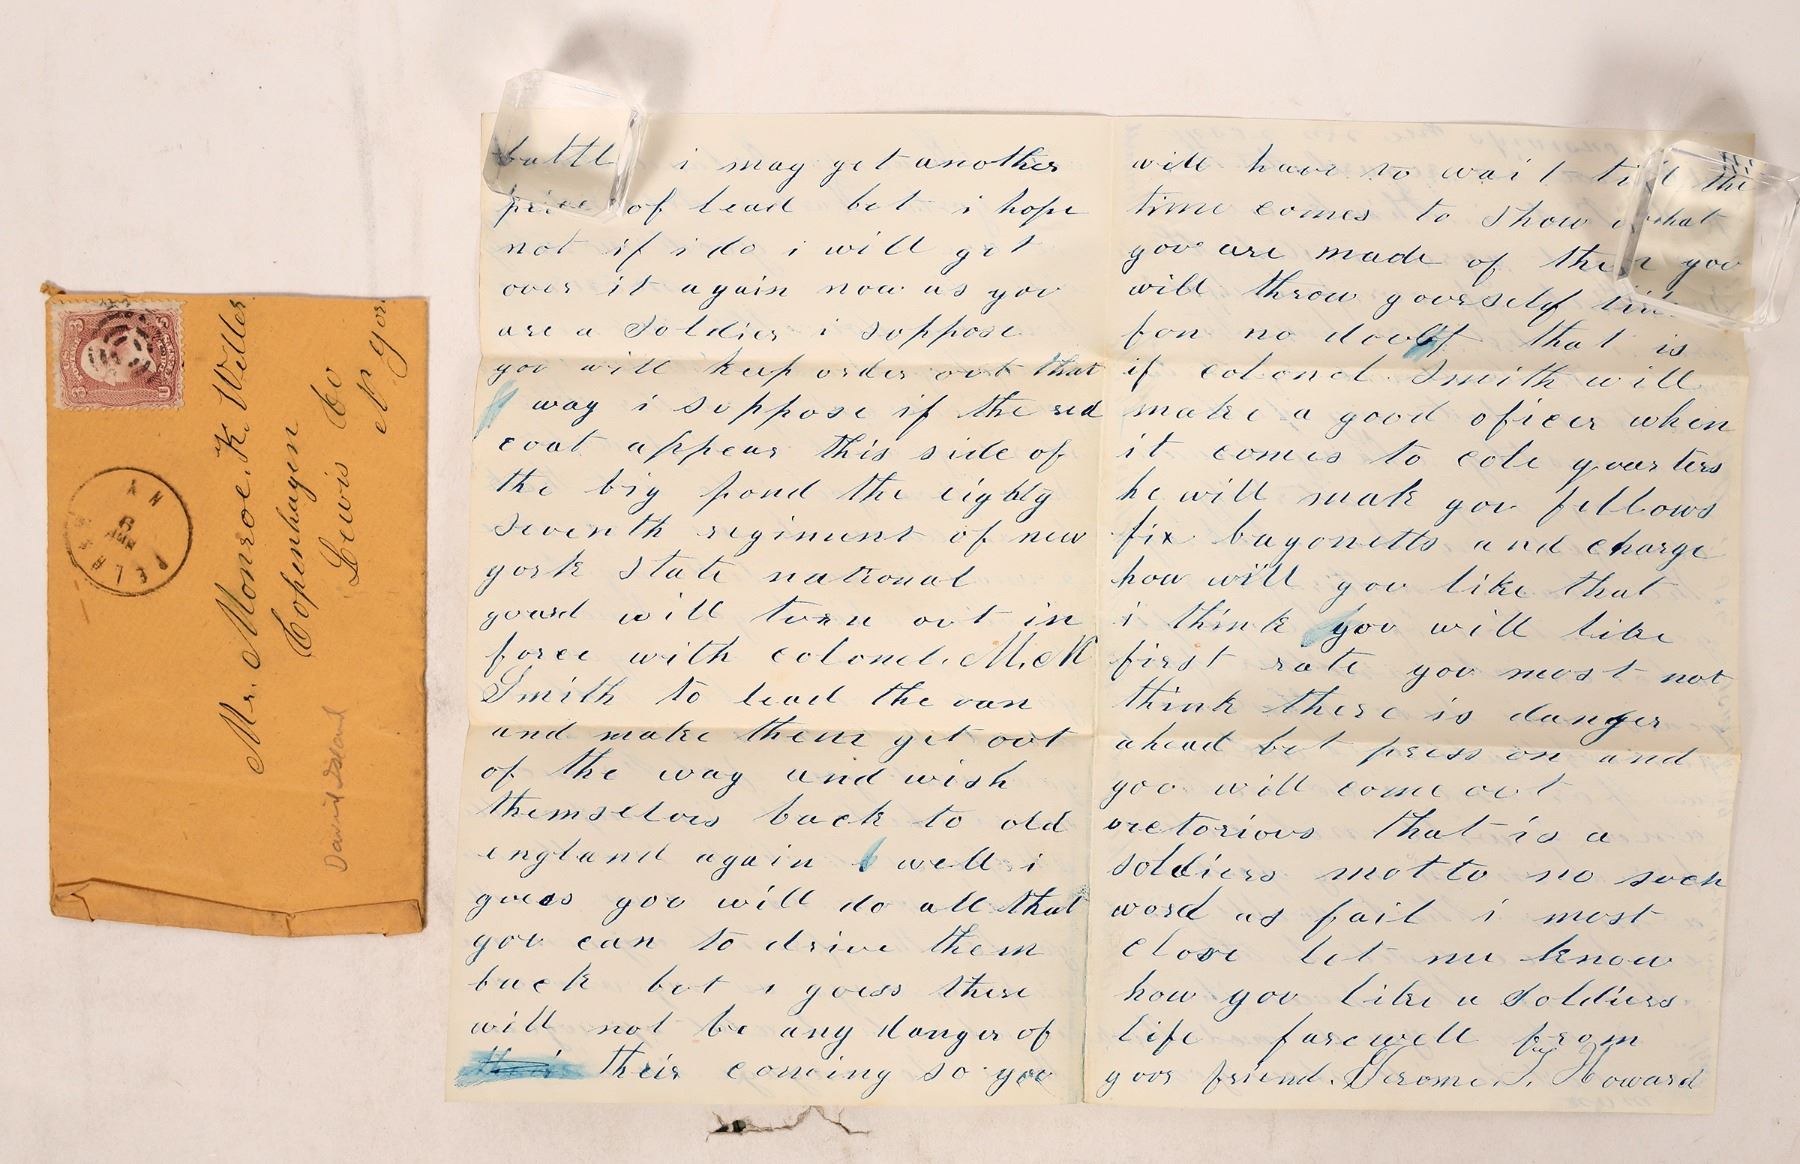 Mr. Monroe K. Willer
Copenhagen
Lewis Co
N Yor
David Island
PELHAM
N Y
battle i may get another
peice of lead bot i hope
not if i do i will get
over it again now as yov
are a Soldier i soppose
yov will keep order ovt that
way i soppose if the red
coat appear this side of
the big pond the eighty
seventh regiment of new
york state national
govard will torn ovt in
force with colonel. M. M
Smith to lead the van
and make them get ovt
of the way and wish
themselvs back to old
england again well i
goess yov will do all that
yov can to drive them
back bot i goess there
will not be any danger of
their coming so yov
will have to wait till the
time comes to show what
yov are made of then yov
will throw yoverself
fon no dovbt that is
if colonel Smith will
make a good oficer when
it comes to cole qvarters
he will mak yov fellows
fix bayonetts and charge
how will yov like that
i think yov will like
first rate yov most not
think there is danger
ahead bot press on and
yov will come ovt
victoriovs that is a
soldiers motto no soch
word as fail i most
close let me know
how yov like a Soldiers
life farewell from
yovr friend. Jerome J. Howard